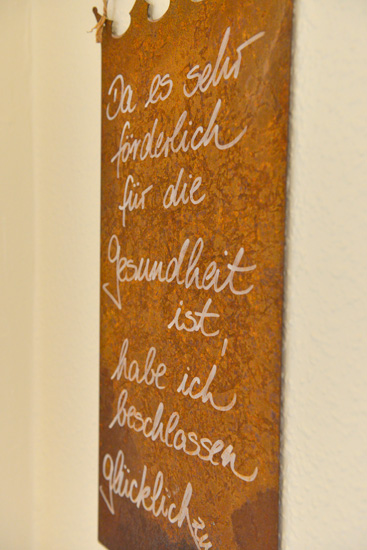 Da es sehr
förderlich
für die
gesundheit
ist,
habe ich
beschlossen
glücklich zu